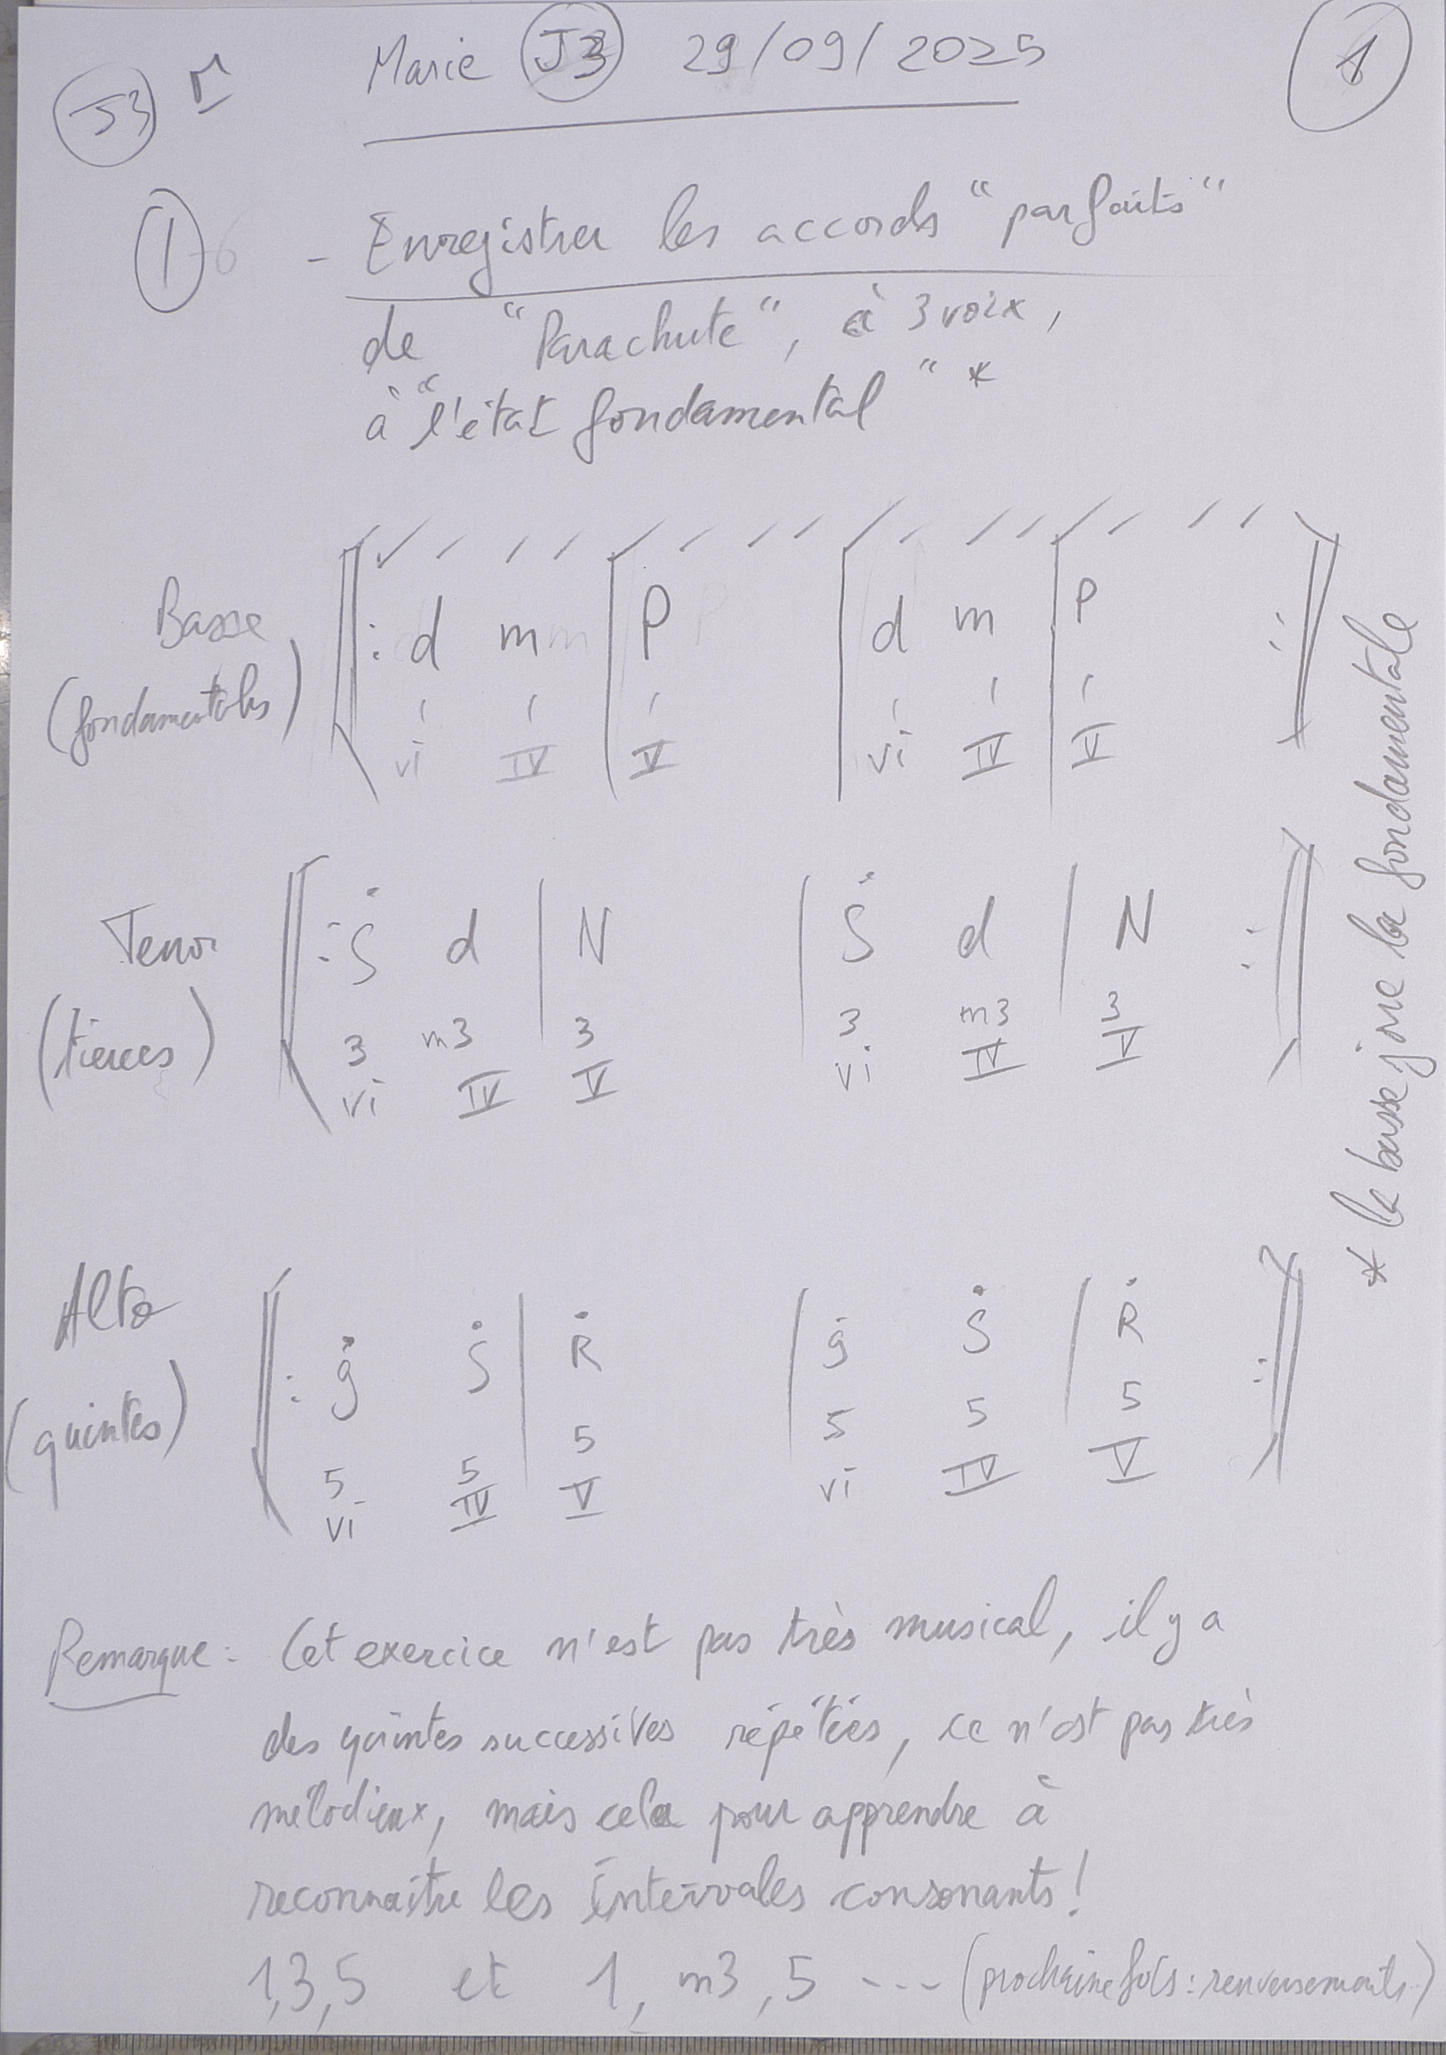 J3 r Marie J3 29/09/2025 1
1 - Enregistrer les accords "parfaits"
de "Parachute", à 3 voix,
à "l'état fondamental" *
Basse ||: d m | P | d m | P :||
(fondamentales) 1 1 1 1 1 1
vi IV V vi IV V
Tenor ||: Ṡ d | N | Ṡ d | N :||
(tierces) 3 m3 3 3 m3 3
vi IV V vi IV V
Alto ||: ġ Ṡ | Ṙ | ġ Ṡ | Ṙ :||
(quintes) 5 5 5 5 5 5
vi IV V vi IV V
* la basse joue la fondamentale
Remarque : Cet exercice n'est pas très musical, il y a
des quintes successives répétées, ce n'est pas très
mélodieux, mais cela pour apprendre à
reconnaître les intervales consonants !
1,3,5 et 1, m3, 5 --- (prochaine fois : renversements)